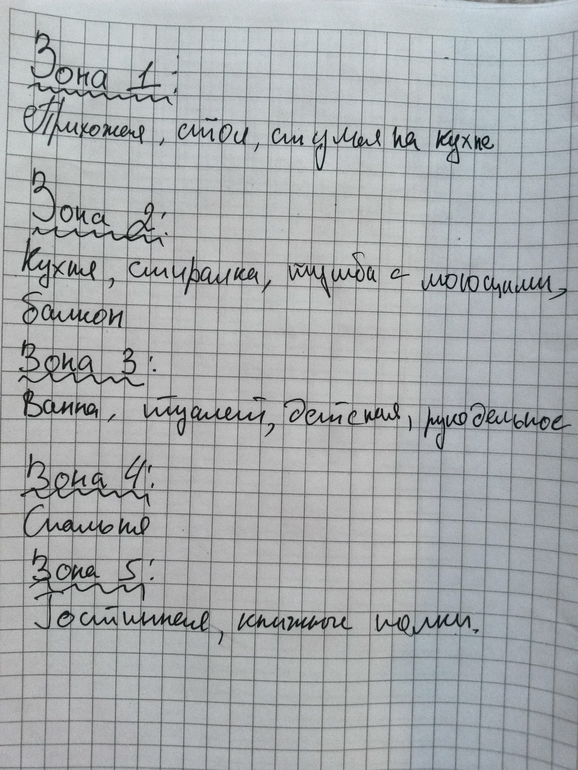 Зона 1:
Прихожая, стол, стулья на кухне
Зона 2:
Кухня, стиралка, тумба с моющими,
балкон
Зона 3:
Ванна, туалет, детская, рукодельное
Зона 4:
Спальня
Зона 5:
Гостинная, книжные полки.